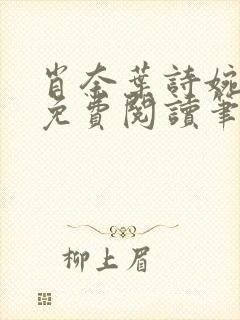 肖奈葉詩婉
免費閱讀筆
柳上眉